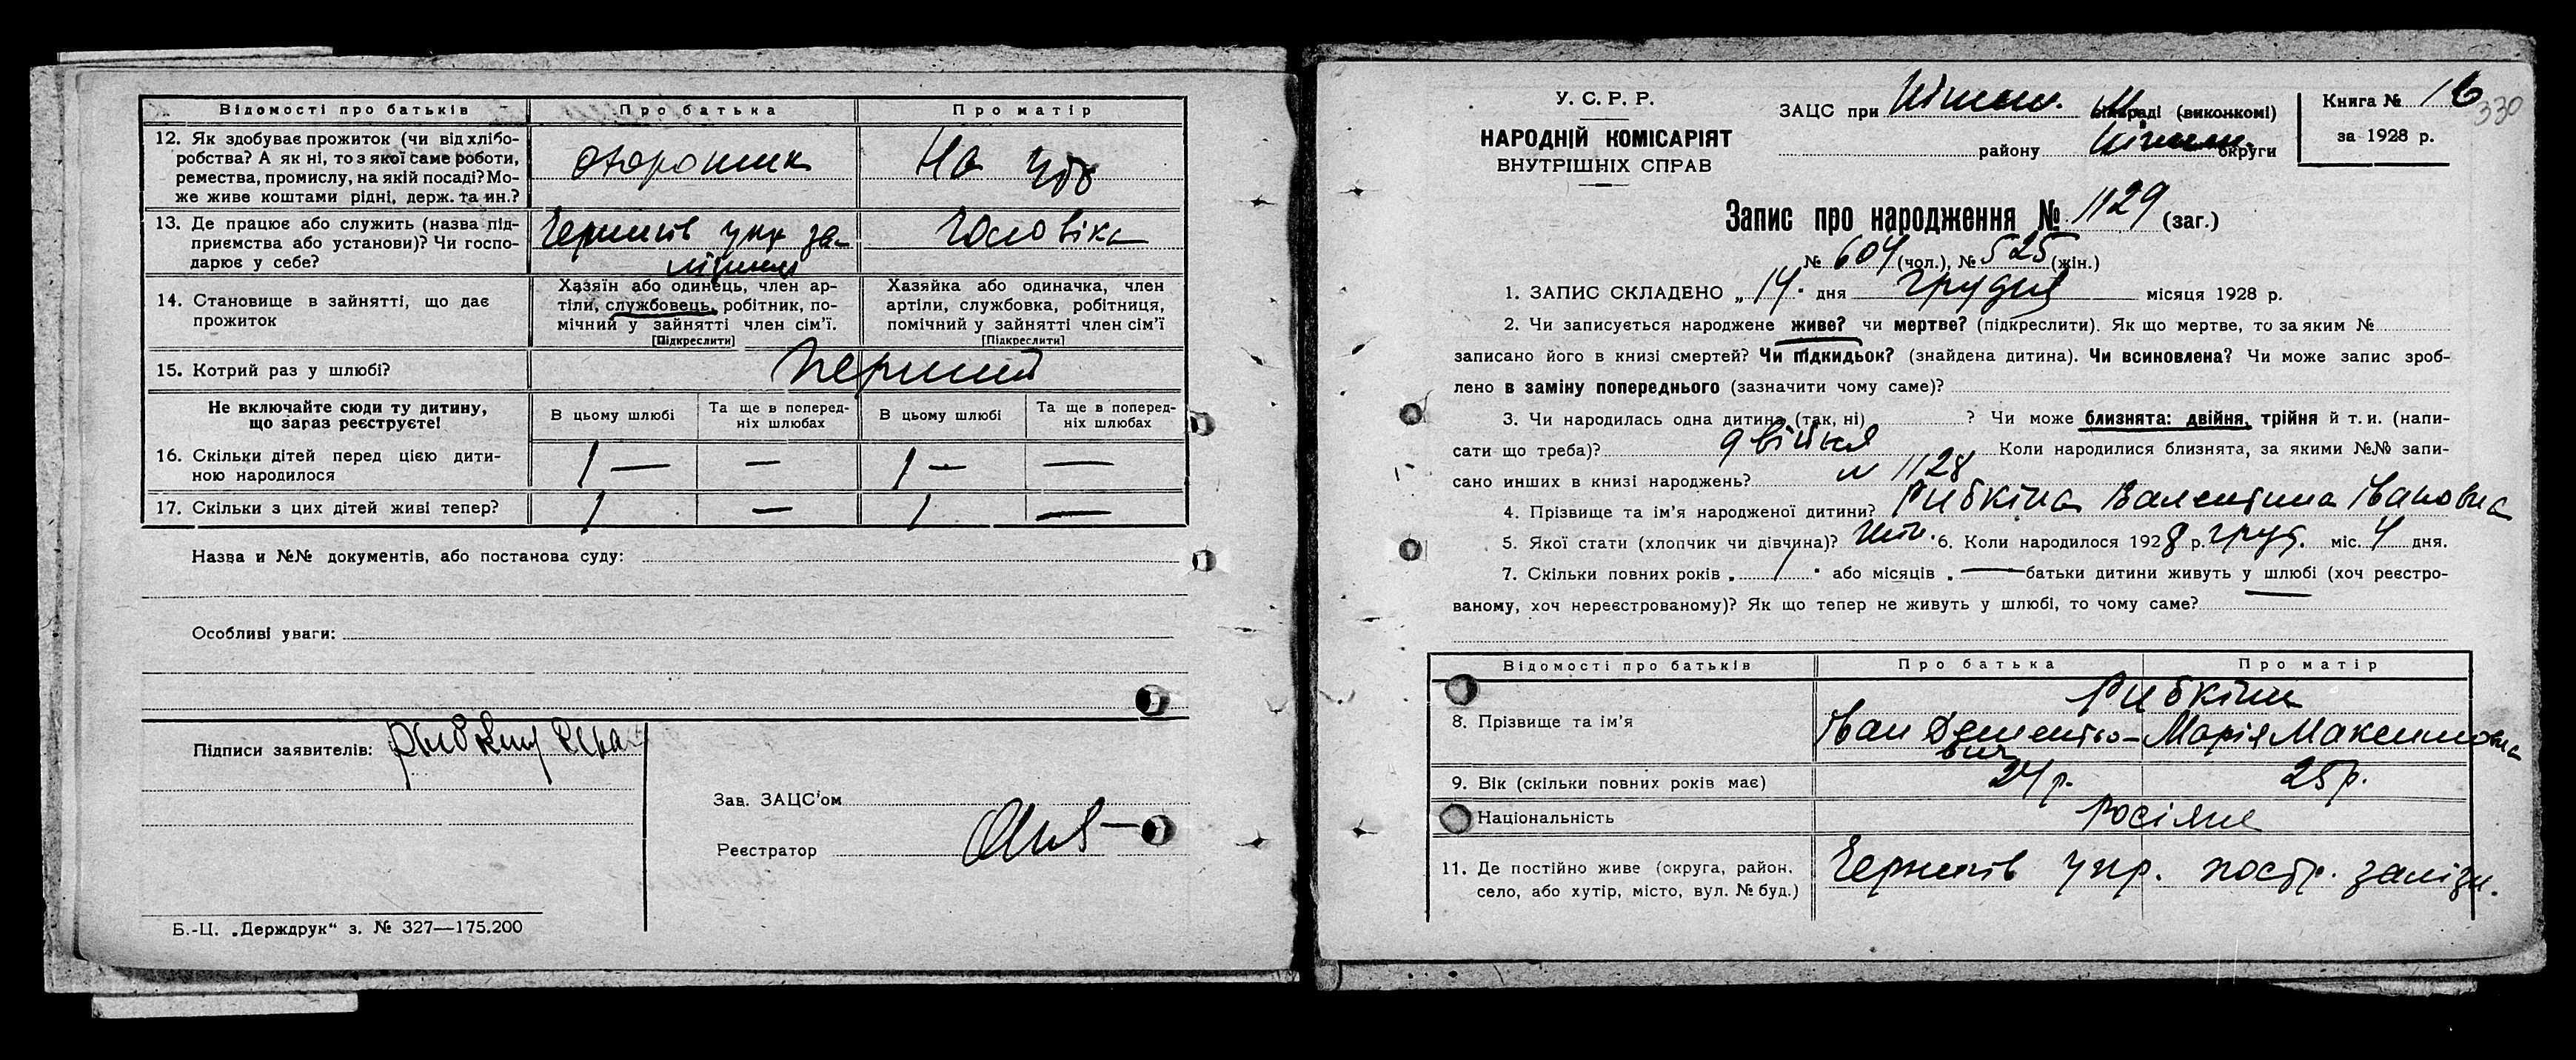 Відомості про батьків Про батька Про матір
12. Як здобуває прожиток (чи від хлібо-
робства? А як ні, то з якої саме роботи,
ремества, промислу, на якій посаді? Мо-
же живе коштами рідні, держ. та ин.?
На
13. Де працює або служить (назва під-
приємства або установи)? Чи госпо-
дарює у себе?
Чернигів упр за-
14. Становище в зайнятті, що дає
прожиток
Хазяїн або одинець, член ар-
тіли, службовець, робітник, по-
мічний у зайнятті член сім'ї.
[Підкреслити]
Хазяйка або одиначка, член
артіли, службовка, робітниця,
помічний у зайнятті член сім'ї
[Підкреслити]
15. Котрий раз у шлюбі?
перший
Не включайте сюди ту дитину,
що зараз реєструєте!
В цьому шлюбі
Та ще в поперед-
ніх шлюбах
В цьому шлюбі
Та ще в поперед-
ніх шлюбах
16. Скільки дітей перед цією дити-
ною народилося
1 — — 1 — —
17. Скільки з цих дітей живі тепер?
1 — 1 —
Назва и №№ документів, або постанова суду:
Особливі уваги:
Підписи заявителів:
Зав. ЗАЦС'ом
Реєстратор
Б.-Ц. „Держдрук“ з. № 327—175.200
У. С. Р. Р.
НАРОДНІЙ КОМІСАРІЯТ
ВНУТРІШНІХ СПРАВ
ЗАЦС при Ніжин. раді (виконкомі)
району Ніжин. округи
Книга № 16
за 1928 р.
330
Запис про народження № 1129 (заг.)
№ 604 (чол.), № 525 (жін.)
1. ЗАПИС СКЛАДЕНО „ 14 “ дня грудня місяця 1928 р.
2. Чи записується народжене живе? чи мертве? (підкреслити). Як що мертве, то за яким №
записано його в книзі смертей? Чи підкидьок? (знайдена дитина). Чи всиновлена? Чи може запис зроб-
лено в заміну попереднього (зазначити чому саме)?
3. Чи народилась одна дитина (так, ні) ? Чи може близнята: двійня, трійня й т. и. (напи-
сати що треба)? двійня Коли народилися близнята, за якими №№ запи-
сано инших в книзі народжень? № 1128
4. Прізвище та ім'я народженої дитини? Рибкіна Валентина Івановна
5. Якої стати (хлопчик чи дівчина)? жін. 6. Коли народилося 1928 р. груд. міс. 4 дня.
7. Скільки повних років „ 1 “ або місяців „ — батьки дитини живуть у шлюбі (хоч реєстро-
ваному, хоч нереєстрованому)? Як що тепер не живуть у шлюбі, то чому саме?
Відомості про батьків Про батька Про матір
Рибкіни
8. Прізвище та ім'я
Іван Дементьо- Марія Максимовна
вич
9. Вік (скільки повних років має) 24 р. 25 р.
Національність росіяне
11. Де постійно живе (округа, район,
село, або хутір, місто, вул. № буд.)
Чернигів упр. постр. залізн.